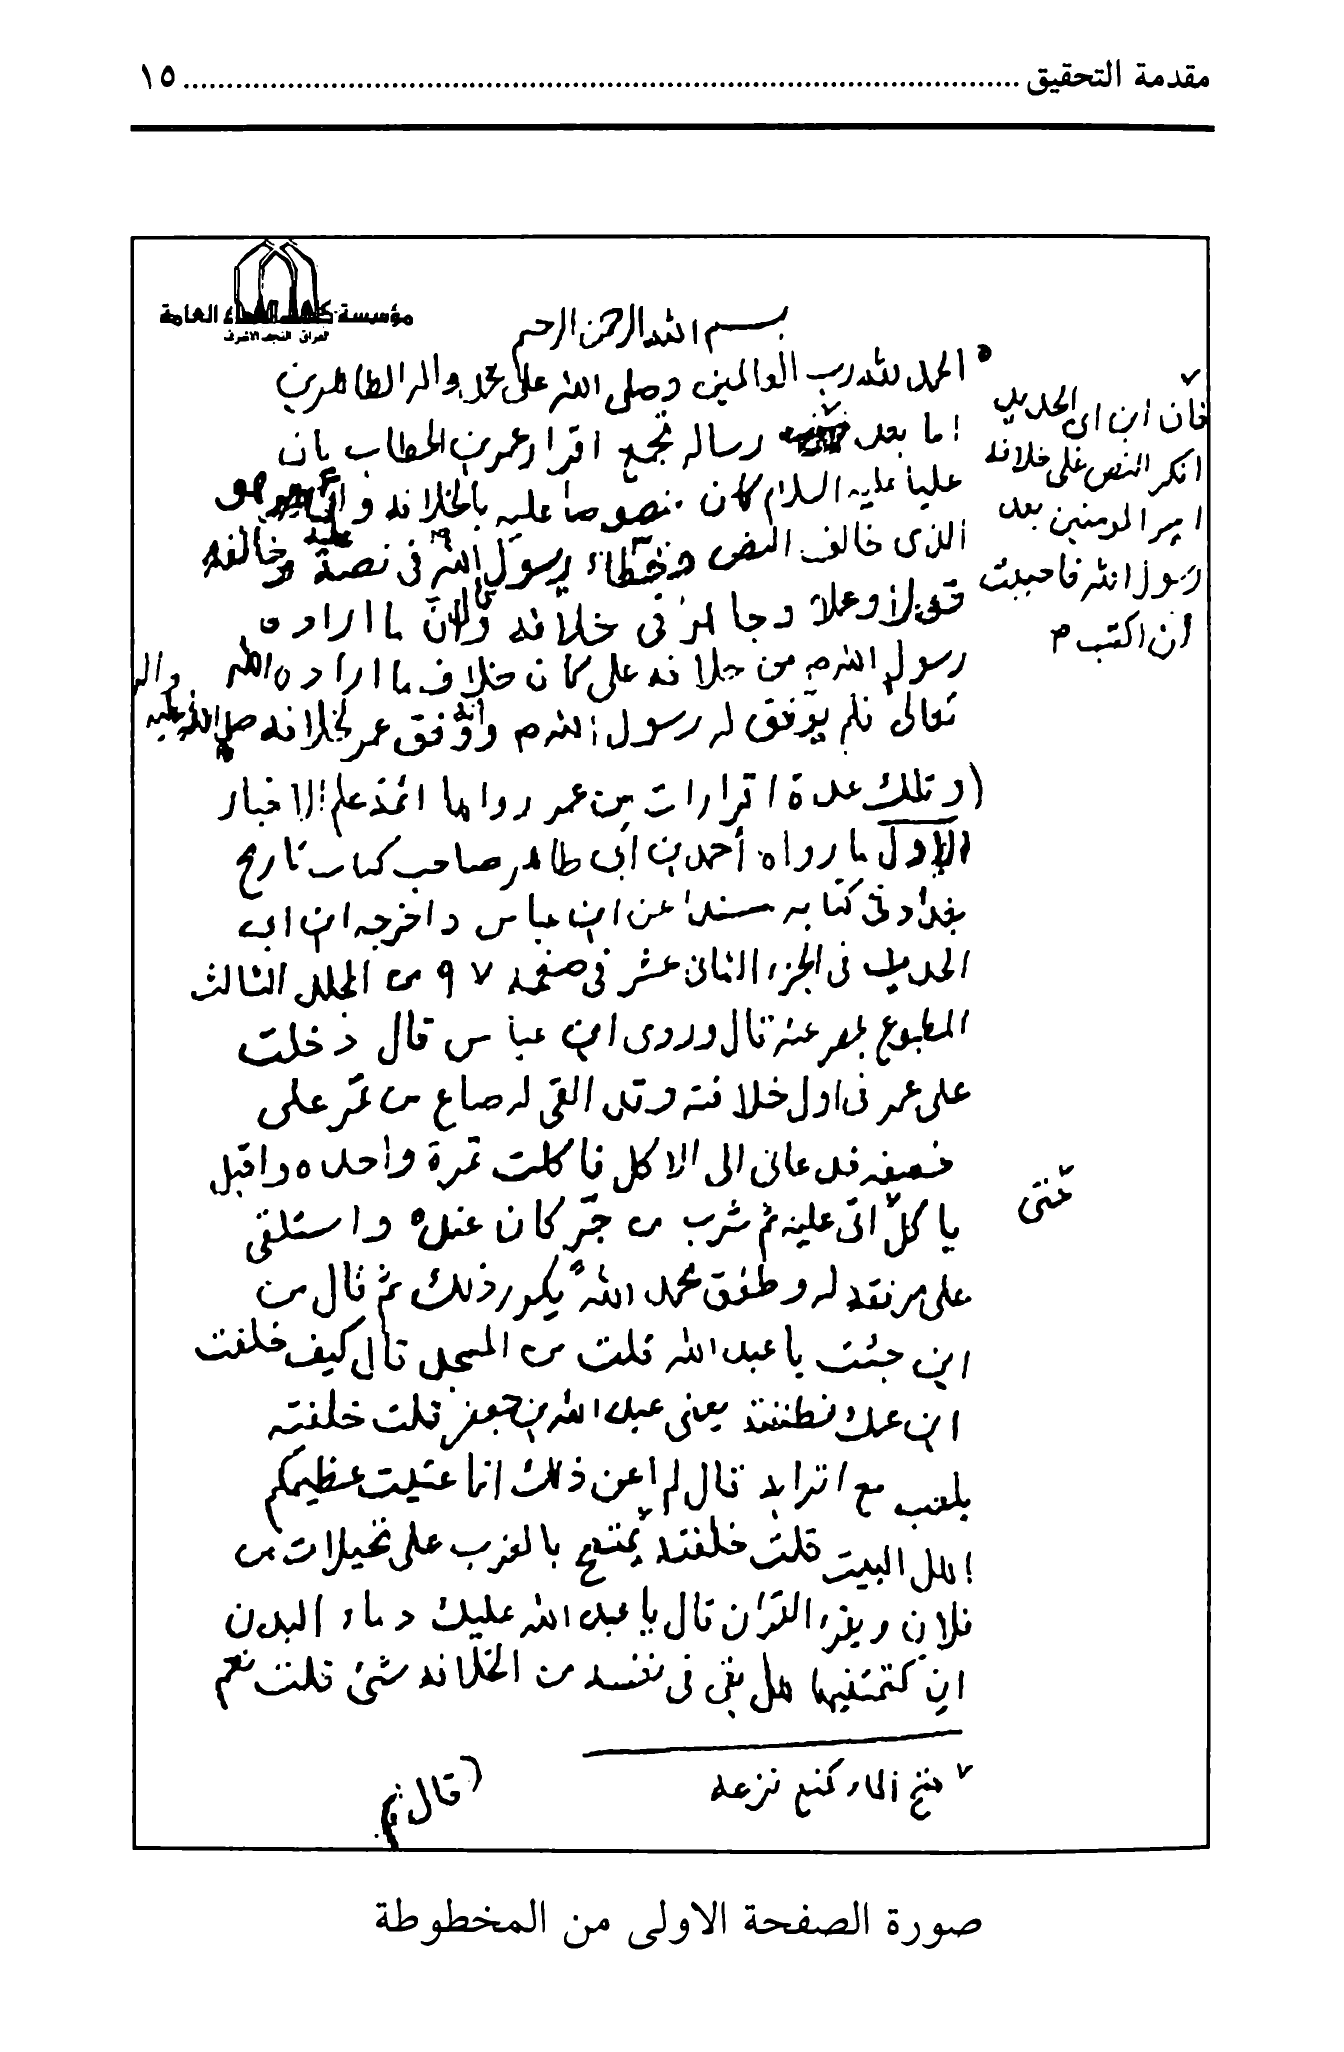 مقدمة التحقيق ........................................ ١٥
مؤسسة كاشف الغطاء العامة
العراق النجف الاشرف
بسم الله الرحمن الرحيم
الحمد لله رب العالمين وصلى الله على محمد واله الطاهرين
اما بعد رسالة تجمع اقرار عمر بن الخطاب بان
عليا عليه السلام كان منصوصا عليه بالخلافه و عمر هو
الذى خالف النص وخطاء رسول الله فى نصه عليه وخالفه
قولا وعملا وجاهر فى خلافه وقال ان ما اراده
رسول الله ص من خلافه على كان خلاف ما اراده الله
تعالى فلم يوفق له رسول الله ص وانه وفق عمر لخلافه صلى الله عليه واله
(وتلك عدة اقرارات من عمر رواها ائمة علم الاخبار
الاول ما رواه أحمد بن أبى طاهر صاحب كتاب تاريخ
بغداد فى كتابه مسندا عن ابن عباس واخرجه ابن ابى
الحديد فى الجزء الثانى عشر فى صفحه ٩٧ من المجلد الثالث
المطبوع بمصر عنه قال وروى ابن عباس قال دخلت
على عمر فى اول خلافته وقد القى له صاع من تمر على
خصفه فدعانى الى الاكل فاكلت تمرة واحده واقبل
ياكل اتى عليه ثم شرب من جر كان عنده واستلقى
على مرفقه له وطفق يحمد الله يكرر ذلك ثم قال من
اين جئت يا عبد الله قلت من المسجد قال كيف خلفت
ابن عمك فظننته يعنى عبد الله بن جعفر قلت خلفته
يلعب مع اترابه قال لم اعن ذلك انما عنيت عظيمكم
اهل البيت قلت خلفته يمتح بالغرب على نخيلات من
فلان ويقرء القرآن قال يا عبد الله عليك دماء البدن
ان كتمتنيها هل بقى فى نفسه من الخلافه شئ قلت نعم
٧ متح الماء كمنع نزعه
(قال ثم
٧
فان ابن ابى الحديد
انكر النص على خلافه
امير المومنين بعد
رسول الله فاحببت
أن اكتب م
صورة الصفحة الاولى من المخطوطة